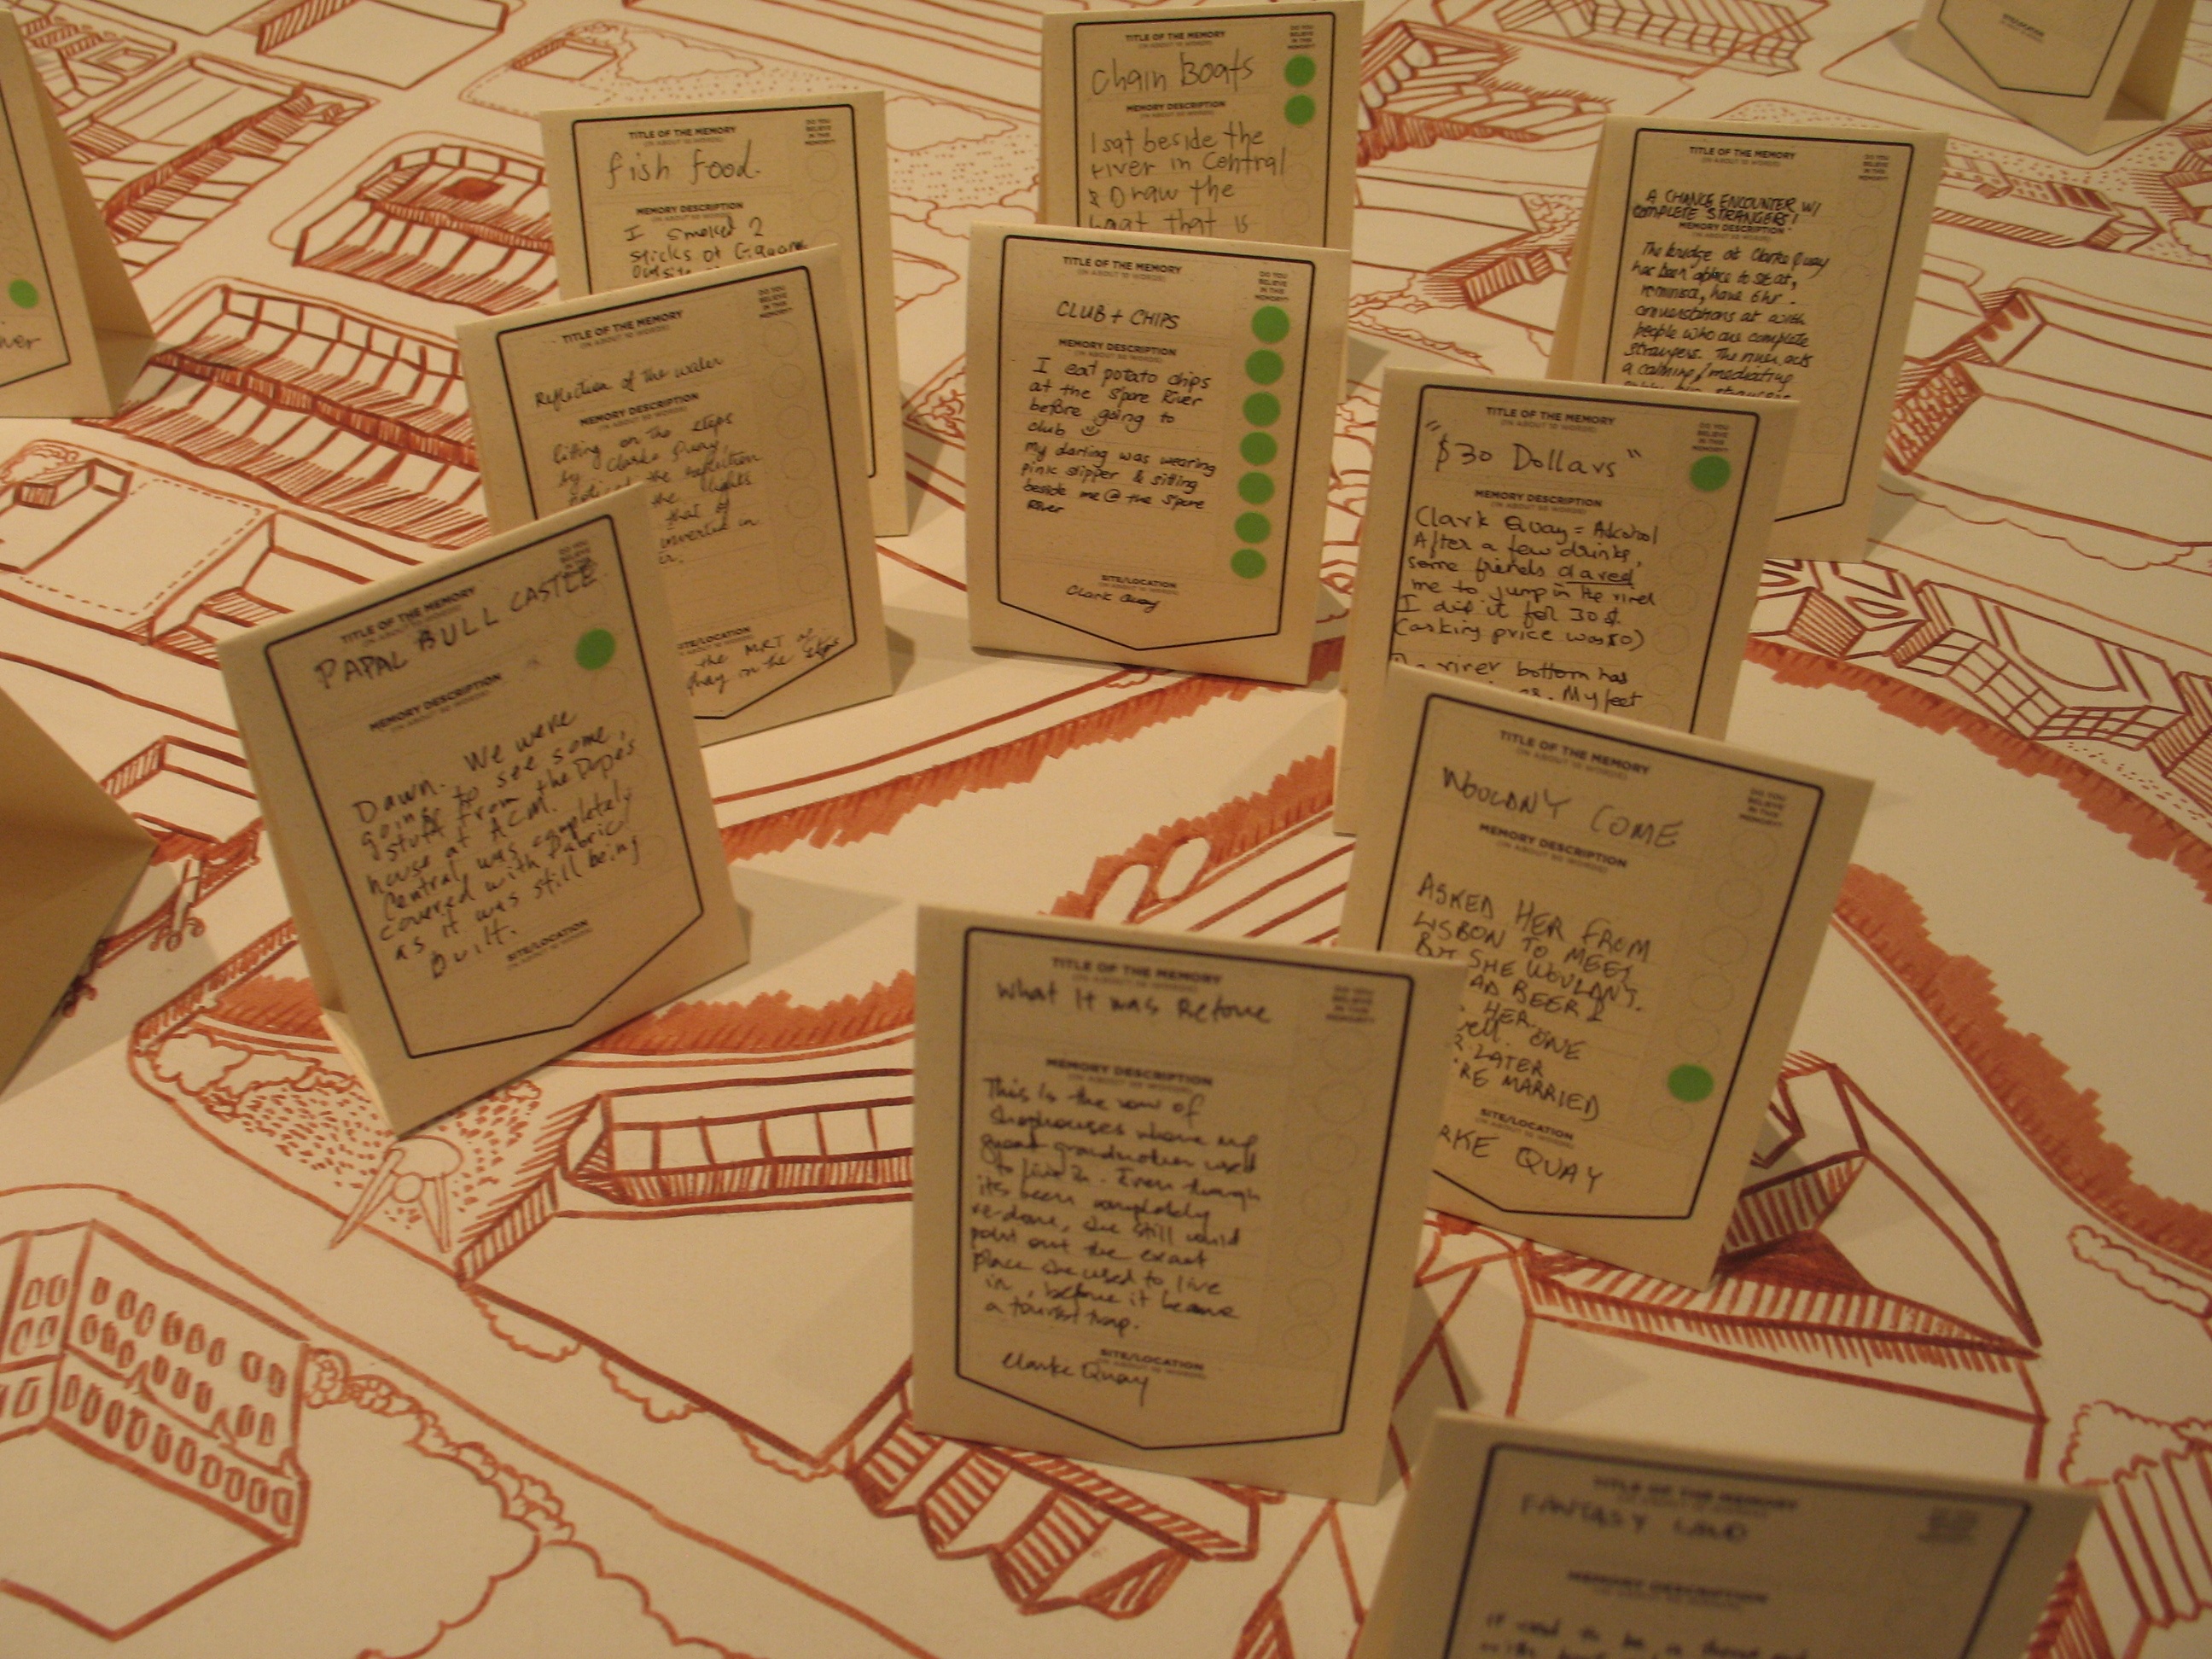 TITLE OF THE MEMORY
(IN ABOUT 10 WORDS)
DO YOU
BELIEVE
IN THIS
MEMORY?
Chain Boats
MEMORY DESCRIPTION
(IN ABOUT 50 WORDS)
I sat beside the
river in Central
& Draw the
boat that is
TITLE OF THE MEMORY
(IN ABOUT 10 WORDS)
DO YOU
BELIEVE
IN THIS
MEMORY?
fish food.
MEMORY DESCRIPTION
(IN ABOUT 50 WORDS)
I smoked 2
sticks of
outside
TITLE OF THE MEMORY
(IN ABOUT 10 WORDS)
DO YOU
BELIEVE
IN THIS
MEMORY?
A CHANCE ENCOUNTER W/
COMPLETE STRANGERS!
MEMORY DESCRIPTION
The bridge at Clarke Quay
has been a place to sit at,
reminisce, have 6 hr.
conversations at with
people who are complete
strangers. The river acts
a calming/mediating
TITLE OF THE MEMORY
(IN ABOUT 10 WORDS)
DO YOU
BELIEVE
IN THIS
MEMORY?
Reflection of the water
MEMORY DESCRIPTION
(IN ABOUT 50 WORDS)
Sitting on the steps
by Clarke Quay,
the
the lights
that
inverted in
SITE/LOCATION
the MRT
on the steps
TITLE OF THE MEMORY
(IN ABOUT 10 WORDS)
DO YOU
BELIEVE
IN THIS
MEMORY?
CLUB + CHIPS
MEMORY DESCRIPTION
(IN ABOUT 50 WORDS)
I eat potato chips
at the Spore River
before going to
club
My darling was wearing
pink slipper & sitting
beside me @ the Spore
River
SITE/LOCATION
(IN ABOUT 10 WORDS)
Clark Quay
TITLE OF THE MEMORY
(IN ABOUT 10 WORDS)
DO YOU
BELIEVE
IN THIS
MEMORY?
"$30 Dollars"
MEMORY DESCRIPTION
(IN ABOUT 50 WORDS)
Clark Quay = Alcohol
After a few drinks,
some friends dared
me to jump in the river
I did it for 30$.
(asking price was 50)
river bottom has
My feet
TITLE OF THE MEMORY
(IN ABOUT 10 WORDS)
DO YOU
BELIEVE
IN THIS
MEMORY?
PAPAL BULL CASTLE
MEMORY DESCRIPTION
(IN ABOUT 50 WORDS)
Dawn. We were
going to see some
stuff from the Pope's
house at ACM.
Central was completely
covered with fabric
as it was still being
built.
SITE/LOCATION
(IN ABOUT 10 WORDS)
TITLE OF THE MEMORY
(IN ABOUT 10 WORDS)
DO YOU
BELIEVE
IN THIS
MEMORY?
WOULDN'T COME
MEMORY DESCRIPTION
(IN ABOUT 50 WORDS)
ASKED HER FROM
LISBON TO MEET
BUT SHE WOULDN'T.
BEER &
HER.
ONE
LATER
MARRIED
SITE/LOCATION
(IN ABOUT 10 WORDS)
RKE QUAY
TITLE OF THE MEMORY
(IN ABOUT 10 WORDS)
DO YOU
BELIEVE
IN THIS
MEMORY?
What it was Before
MEMORY DESCRIPTION
(IN ABOUT 50 WORDS)
This is the row of
shophouses where my
great grandmother used
to live in. Even though
its been completely
re-done, she still could
point out the exact
place she used to live
in, before it became
a tourist trap.
SITE/LOCATION
(IN ABOUT 10 WORDS)
Clarke Quay
TITLE OF THE MEMORY
FANTASY LAND
MEMORY DESCRIPTION
it used to be a